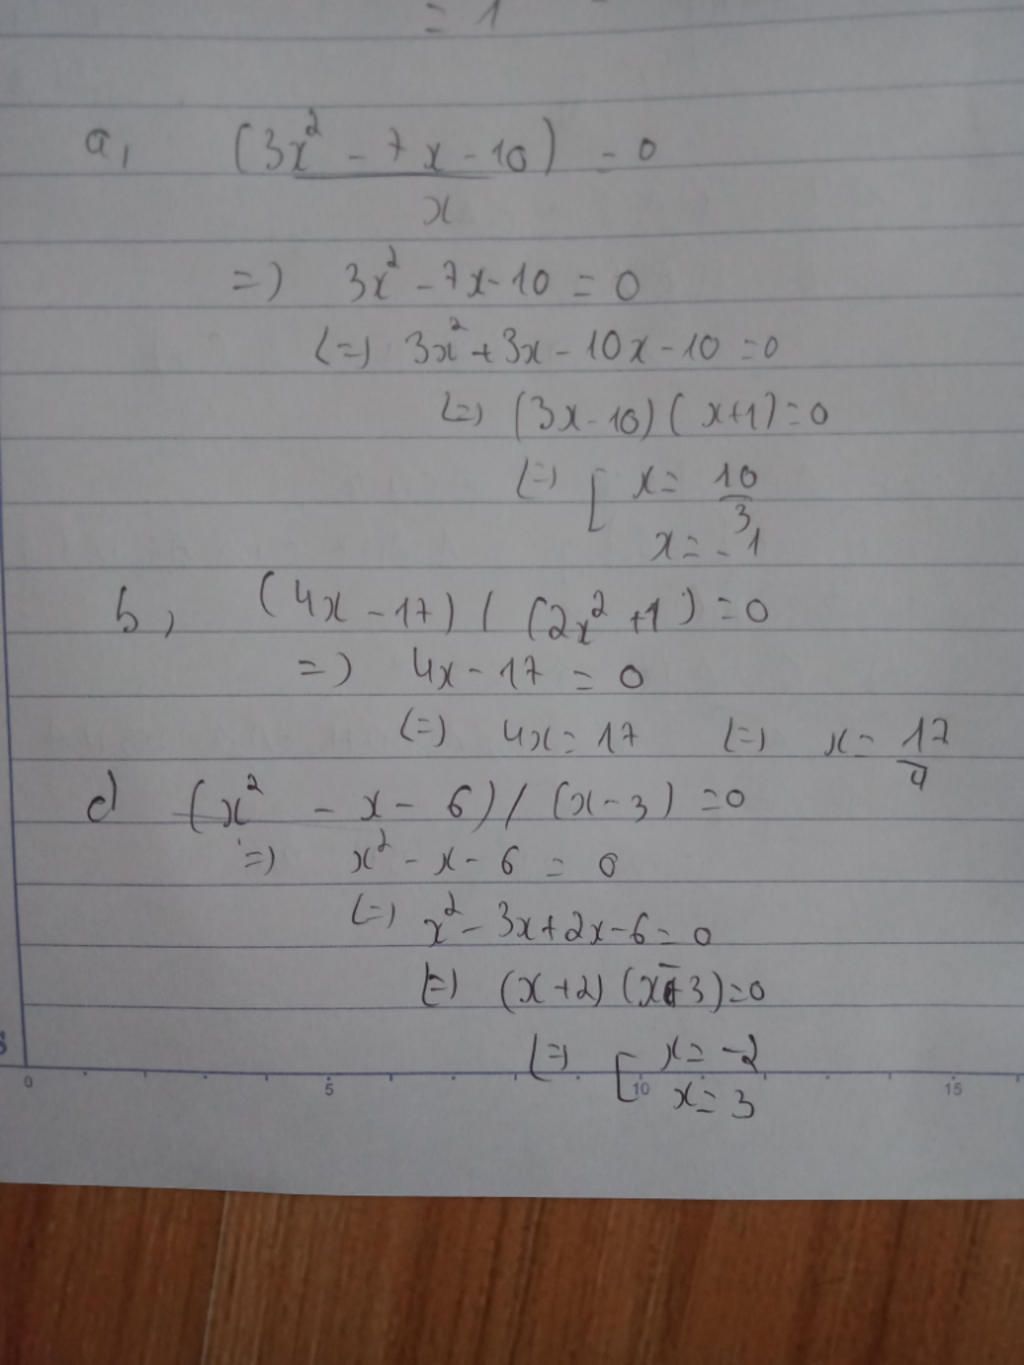 = 1
a, (3x² - 7x - 10) - 0
x
=) 3x² - 7x - 10 = 0
(=) 3x² + 3x - 10x - 10 = 0
(=) (3x - 10) ( x+1) = 0
(=) [ x = 10
3
x = - 1
b, (4x - 17) / (2x² + 1) = 0
=) 4x - 17 = 0
(=) 4x = 17 (=) x = 17
4
d (x² - x - 6) / (x - 3) = 0
=) x² - x - 6 = 0
(=) x² - 3x + 2x - 6 = 0
(=) (x + 2) (x - 3) = 0
(=) [ x = -2
x = 3
0 5 10 15